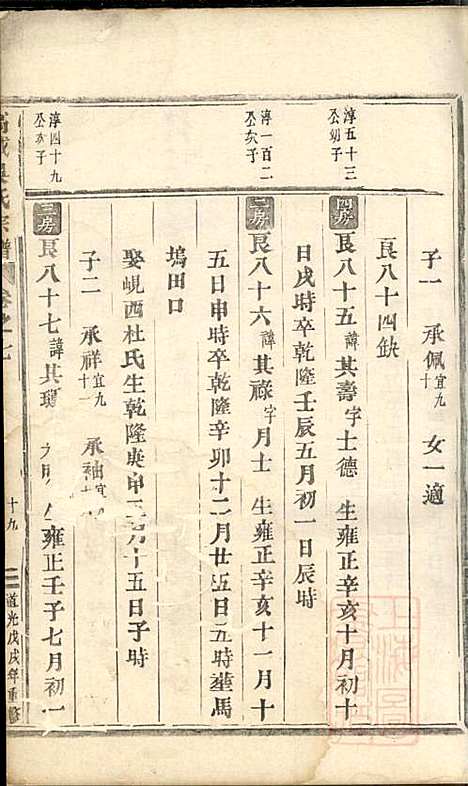 子一 承佩宜九十 女一適
良八十四缺
淳五十三公幼子
四房 良八十五諱其壽字士德 生雍正辛亥十月初十
日戌時卒乾隆壬辰五月初一日辰時
淳一百二公次子
二房 良八十六諱其祿字月士 生雍正辛亥十一月十
五日申時卒乾隆辛卯十二月廿五日丑時塟馬
塢田口
娶峴西杜氏生乾隆庚申 月十五日子時
子二 承祥宜九十一 承袖宜
淳四十九公次子
三房 良八十七諱其 生雍正壬子七月初一
氏宗譜 卷之七 十九 道光戊戌年重修
上海圖